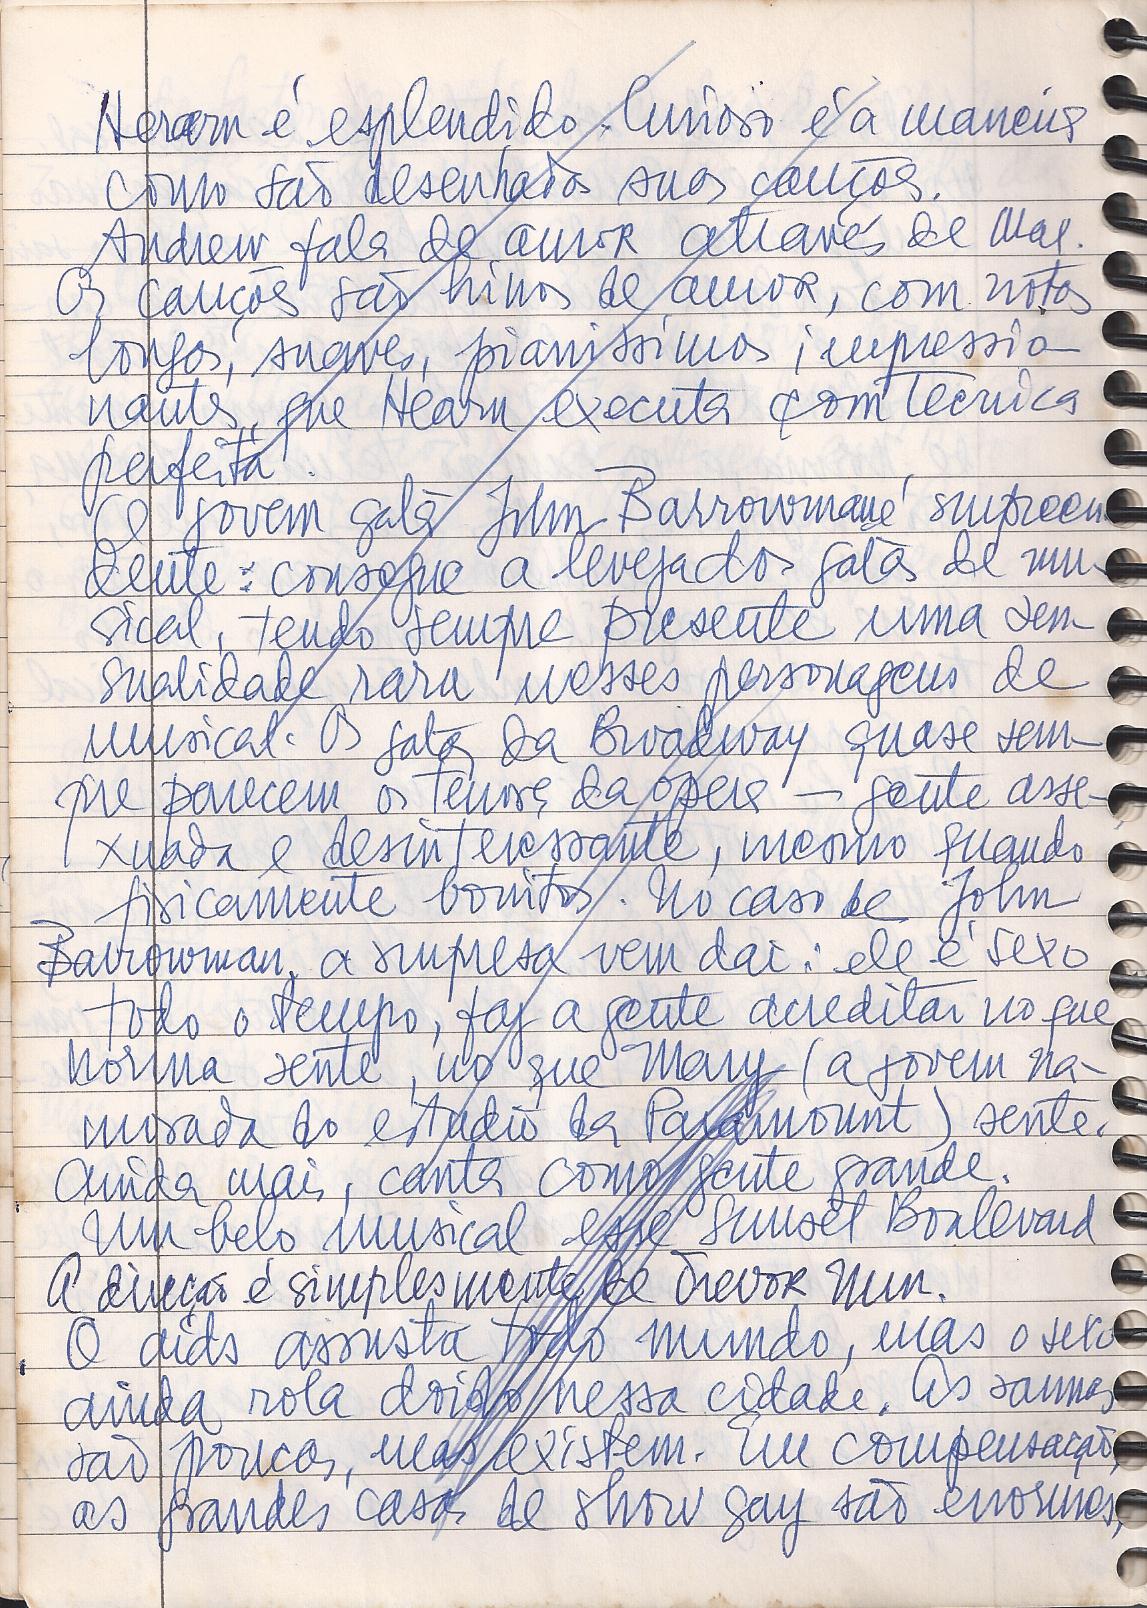 Hearn é esplendido. Curioso é a maneira
como são desenhadas suas canções.
Andrew fala de amor através de Max.
As canções são hinos de amor, com notas
longas, suaves, pianissimos impressio-
nantes, que Hearn executa com tecnica
perfeita.
O jovem galã John Barrowman é surpreen
dente: consegue a leveza dos galãs de mu-
sical, tendo sempre presente uma sen-
sualidade rara nesses personagens de
musical. Os galãs da Broadway quase sem-
pre parecem os tenores da opera — gente asse-
xuada e desinteressante, mesmo quando
fisicamente bonitos. No caso de John
Barrowman, a surpresa vem daí: ele é sexo
todo o tempo, faz a gente acreditar no que
Norma sente, no que Mary (a jovem na-
morada do estudio da Paramount) sente.
Ainda mais, canta como gente grande.
Um belo musical esse Sunset Boulevard
A direção é simplesmente de Trevor Nun.
O aids assusta todo mundo, mas o sexo
ainda rola doido nessa cidade. As saunas
são poucas, mas existem. Em compensação,
as grandes casas de show gay são enormes,